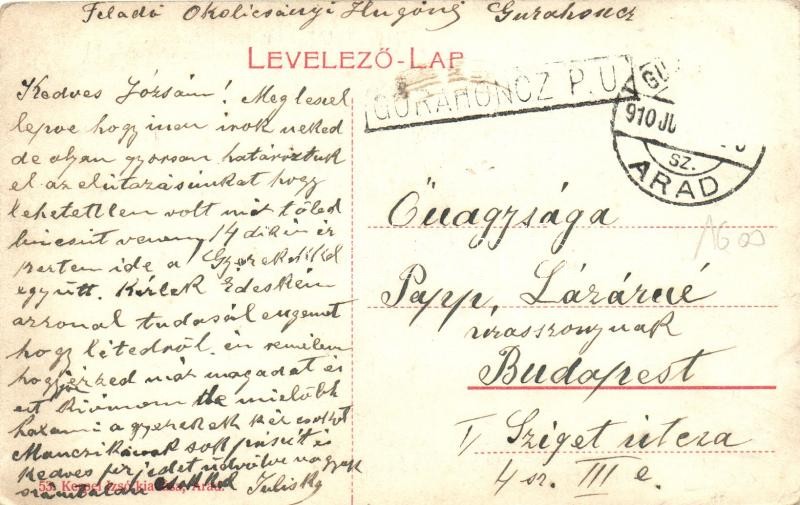 Feladó Okolicsányi Hugóné Gurahoncz
LEVELEZŐ-LAP
GURAHONCZ P.U.
910 JU
SZ.
ARAD
Kedves Józsám! Meg leszel
lepve hogy innen irok neked
de olyan gyorsan határoztuk
el az elútazásunkat hogy
lehetetlen volt már tőled
búcsút vennem, 14 dikén ér
keztem ide a Gyerekekkel
együtt. Kérlek Édeském
azonnal tudasál engemet
hogy létedről, én remélem
hogy jól érzed már magadat és
ezt kivánom de mielőbb
a gyerekek kézcsókot
Manczikának sok pusit és
kedves férjedet üdvözölve vagyok
számtalan csókkal Juliska
Őnagysága
Papp Lázárné
úrasszonynak
Budapest
1600
I, Sziget útcza
4 sz. III e.
55. Kerpel Izsó kiadása, Arad.